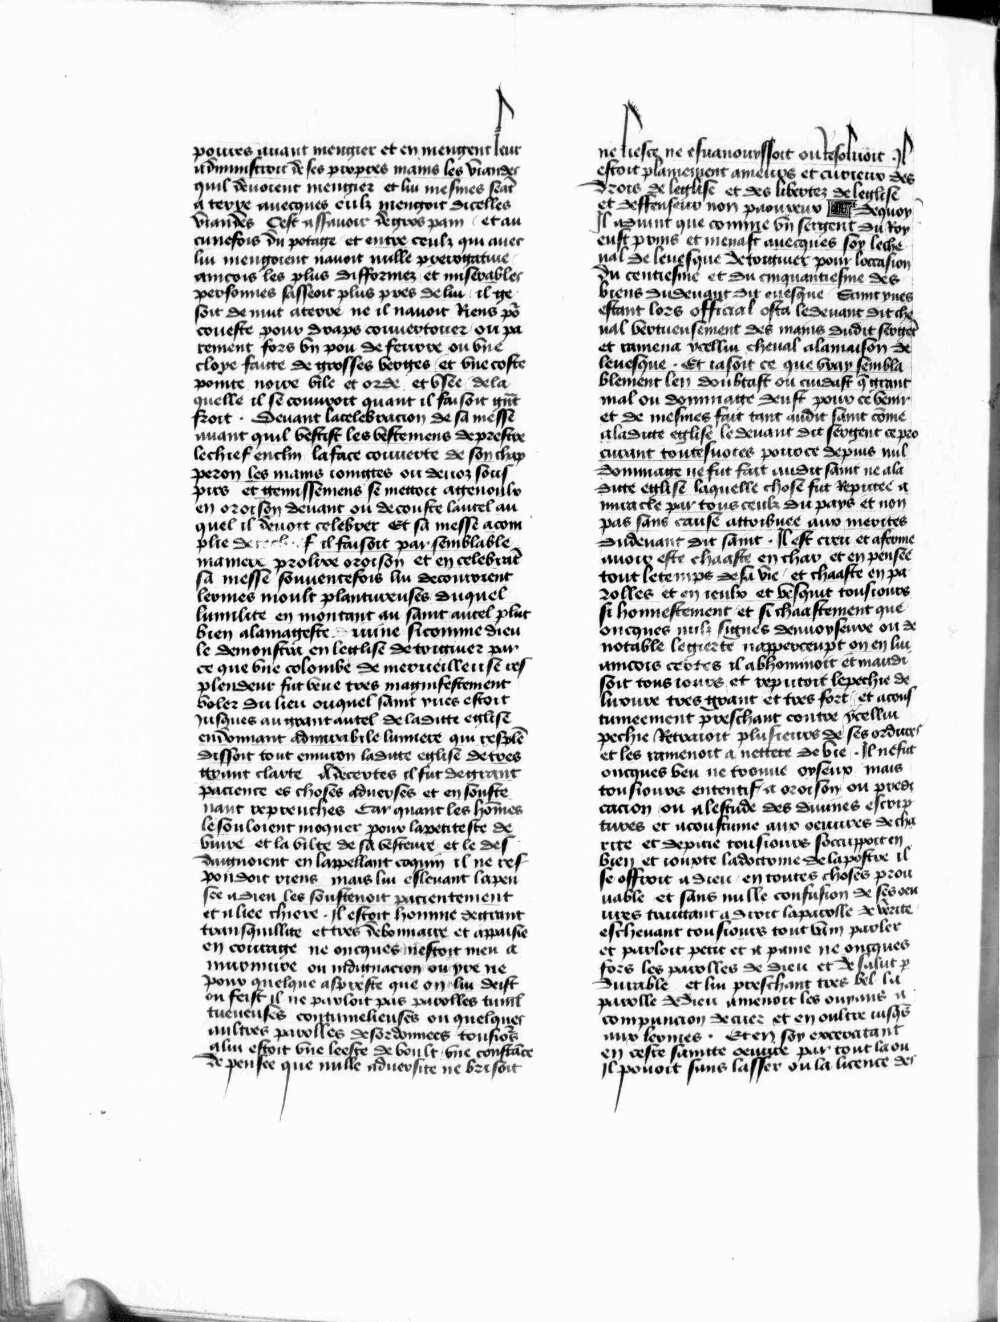 poures auant mengier et en mengent leur
administroit de ses propres mains les viandes
quil deuoient mengier et lui mesmes seat
a terre auecques eulz mengoit dicelles
viandes Cest assauoir de gros pain et au
cunefois du potage et entre ceulz qui auec
lui mengoient nauoit nulle prerogatiue
aincois les plus difformez et miserables
personnes sasseoit plus pres de lui il ge
soit de nuit a terre ne il nauoit Riens po
coueste pour draps couuertouer ou pa
rement fors vn pou de feurre ou vne
cloye faitte de grosses verges et vne coste
pointe noire vile et orde et vsee de la
quelle il se couuroit quant il faisoit gnt
froit . Deuant la celebracion de sa messe
auant quil vestist les vestemens de prestre
le chief enclin la face couuerte de son chap
peron les mains iointes ou deuoz sous
pirs et gemissemens se mettoit a genoulx
en oroison deuant ou de couste lautel au
quel il deuoit celebrer Et sa messe acom
plie il faisoit par semblable
maniere prolixe oroison et en celebrat
sa messe souuentefois lui decouroient
lermes moult plantureuses duquel
lumilite en montant au saint autel plut
bien a la mageste diuine si comme dieu
le demonstra en leglise de triguier par
ce que vne colombe de merueilleuse res
plendeur fut veue tres magnifestement
voler du lieu ouquel saint yues estoit
Jusques au grant autel de la ditte eglise
en donnant admirabile lumiere qui resple
dissoit tout enuiron la ditte eglise de tres
grant clarte A decertes il fut de grant
pacience es choses aduerses et en souste
nant reprouches Car quant les homes
le souloient moquer pour la petiteste de
viure et la vilte de sa vesteure et le des
daignoient en lappellant coquin il ne res
pondoit riens mais lui esleuant la pen
see a dieu les soustenoit pacientement
et a liee chiere . Il estoit homme de grant
transquillite et tres debonnaire et appaisie
en courage ne oncques nestoit meu a
murmure ou indignacion ou yre ne
pour quelque aspreste que on lui deist
ou feist il ne parloit pas parolles tumul
tueuses contumelieuses ou quelques
aultres parolles desordonnees tousiors
a lui estoit vne leesce de voult vne constace
de pensee que nulle aduersite ne brisoit
ne liesce ne esuanouyssoit ou resoluoit . Il
estoit plainement ameurs et curieux des
drois de leglise et des libertez de leglise
et deffenseur non paoureux de quoy
Il aduint que comme vn sergent du Roy
eust prins et menast auecques soy le che
ual de leuesque de triguier pour loccasion
du centiesme et du cinquantiesme des
biens du deuant dit euesque Saint yues
estant lors official osta le deuant dit che
ual vertueusement des mains dudit serget
et ramena ycellui cheual a la maison de
leuesque . Et ia soit ce que vray sembla
blement len doubtast ou cuidast q grant
mal ou dommage deust pour ce venir
et de mesmes fait tant audit saint come
a la ditte eglise le deuant dit sergent ce pro
curant touteuoies pour ce depuis nul
dommage ne fut fait audit saint ne a la
ditte eglise laquelle chose fut Reputee a
miracle par tous ceulz du pays et non
pas sans cause attribuee aux merites
du deuant dit saint . Il est creu et aferme
auoir este chaaste en char et en pensee
tout le temps de sa vie et chaaste en pa
rolles et en ieulx et vesquit tousiours
si honnestement et si chaastement que
oncques nulz signes denuoyseure ou de
notable legierte napperceupt on en lui
aincois certes il abhominoit et maudi
soit tous iours et reputoit le pechie de
luxure tres grant et tres fort et acous
tumeement preschant contre ycellui
pechie Retraioit plusieurs de ses ordures
et les ramenoit a nettete de vie . Il ne fut
oncques veu ne trouue oyseux mais
tousiours ententif a oroison ou predi
cacion ou a lestude des diuines escrip
tures et acoustume aux oeuures de cha
rite et de pitie tousiours soccuppoit en
bien et iouxte la doctrine de lapostre il
se offroit a dieu en toutes choses prou
uable et sans nulle confusion de ses oeu
ures traittant a droit la parolle de verite
escheuant tousiours tout vain parler
et parloit petit et a paine ne oncques
fors les parolles de dieu et de salut p
durable et lui preschant tres bel la
parolle de dieu amenoit les ouyans a
compuncion de cuer et en oultre iusqs
aux lermes . Et en soy excercitant
en ceste sainte oeuure par tout la ou
il pouoit sans lasser ou la licence des